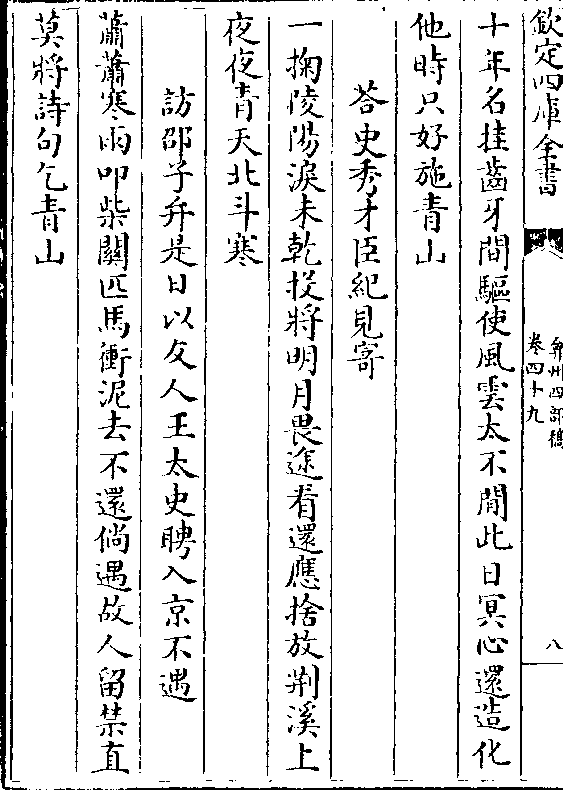 欽定四庫全書
弇州四部稿
卷四十九
八
十年名挂齒牙間驅使風雲太不閒此日冥心還造化
他時只好施青山
荅史秀才臣紀見寄
一掬陵陽淚未乾投將明月畏途看還應捨放荆溪上
夜夜青天北斗寒
訪邵子弁是日以友人王太史聘入京不遇
蕭蕭寒雨叩柴關匹馬衝泥去不還倘遇故人留禁直
莫將詩句乞青山